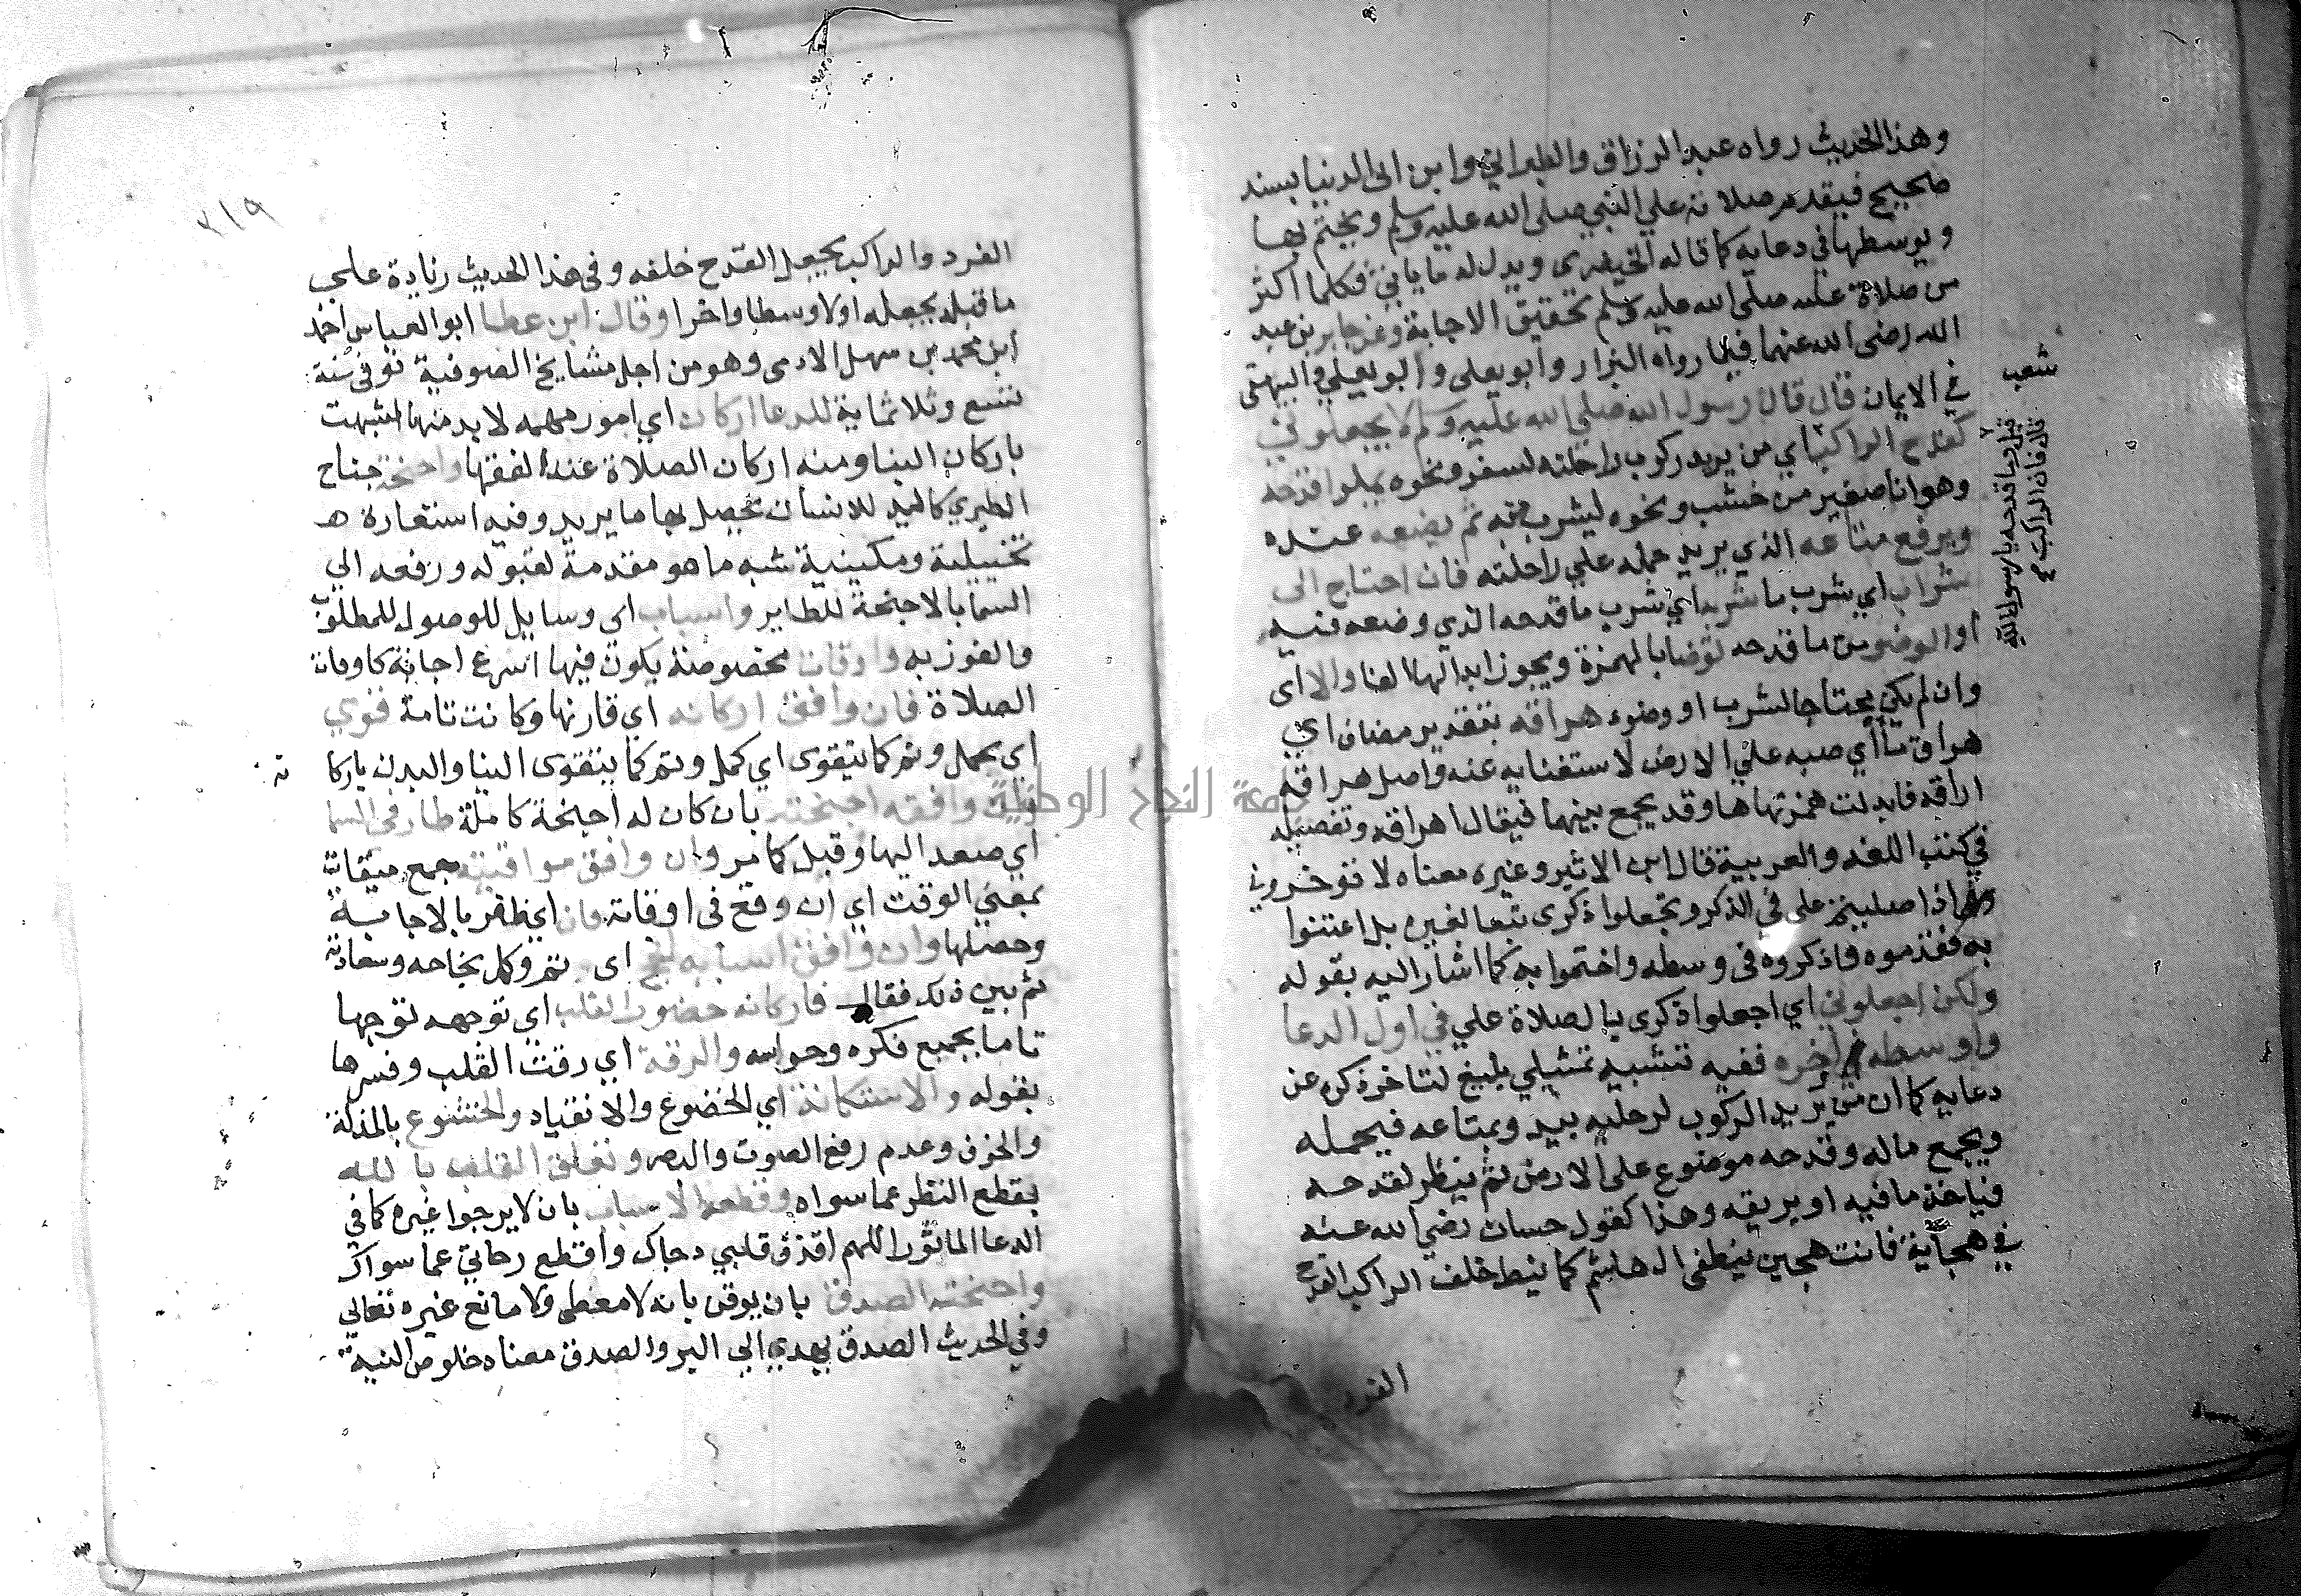 وهذا الحديث رواه عبد الرزاق والطبراني وابن ابى الدنيا بسند
صحيح فيقدم صلاته علي النبي صلى الله عليه وسلم ويختم بها
ويوسطها في دعايه كما قاله الخيضري ويدل له ما ياتي فكلما اكثر
من صلاة عليه صلى الله عليه وسلم تحقيق الاجابة وعن جابر بن عبد
الله رضى الله عنهما فيما رواه البزار وابو يعلى وابو يعلي والبيهقى
في الايمان قال قال رسول الله صلى الله عليه وسلم لا تجعلوني
كقدح الراكب اي من يريد ركوب راحلته لسفر ونحوه يملوا قدحه
وهو انا صغير من خشب ونحوه ليشرب منه ثم يضعه عنده
ويرفع متاعه الذي يريد حمله علي راحلته فان احتاج الى
شراب اي يشرب ما شربه اي شرب ما قدحه الذي وضعه فيه
او الوضو من ما قدحه توضا بالهمزة ويجوز ابدالها الفا والا اى
وان لم يكن يحتاج الشرب او وضوء هراقه بتقدير مضاف اي
هراق ما أي صبه علي الارض لاستغنايه عنه واصل هراقه
اراقه فابدلت همزتها ها وقد يجمع بينهما فيقال اهراقه وتفصيله
في كتب اللغه والعربية قال ابن الاثير وغيره معناه لا توخروني
اذا صليتم على في الذكر وتجعلوا ذكرى تبعا لغيره بل اعتنوا
به فقدموه فاذكروه فى وسطه واختموا به كما اشار اليه بقوله
ولكن اجعلوني اي اجعلوا ذكرى بالصلاة علي في اول الدعا
واوسطه واخره ففيه تشبيه تمثيلي بليغ لتاخر ذكره عن
دعايه كما ان من يريد الركوب لرحليه بيد وبمتاعه فيحمله
ويجمع ماله وقدحه موضوع على الارض ثم ينظر لقدحه
فياخذ ما فيه او يريقه وهذا كقول حسان رضي الله عنه
في هجايه فانت هجين نيط في ال هاشم كما نيط خلف الراكب القدح
الفرد
شعب
قيل وما قدحه يا رسول الله
قال فان الراكب
٣١٩
الفرد والراكب يجعل القدح خلفه وفى هذا الحديث زيادة على
ما قبله بجعله اولا وسطا واخرا وقال ابن عطا ابو العباس احمد
ابن محمد بن سهل الادمى وهو من اجل مشايخ الصوفية توفى سنة
تسع وثلاثماية للدعا اركان اي امور مهمه لا بد منها اشبهت
باركان البنا ومنه اركان الصلاة عند الفقها واجنحة جناح
الطيري كاليد للانسان تحصل بها ما يريد وفيه استعارة هـ
تخييلية ومكينية شبه ما هو مقدمة لقبوله ورفعه الي
السما بالاجنحة للطاير واسباب اى وسايل للوصول للمطلوب
والفوز به واوقات مخصوصة يكون فيها اسرع اجابة كاوقات
الصلاة فان وافق اركانه اي قارنها وكانت تامة قوي
اي يحمل وتم كما يتقوى اي كمل وتم كما يتقوى البنا والبدن باركا نه
وافقه اجنحته بان كان له اجنحة كاملة طار في السما
اي صعد اليها وقبل كما مر وان وافق مواقيته جمع ميقات
بمعني الوقت اي ان وقع في اوقاته فاز اي ظفر بالاجابة
وحصلها وان وافق اسبابه نجح اى تم وكمل نجاحه وسعادته
ثم بين ذلك فقال فاركانه حضور القلب اي توجهه توجها
تاما بجميع فكره وحواسه والرقة اي رقت القلب وفسرها
بقوله والاستكانة اي الخضوع والانقياد والخشوع بالمذلة
والحزن وعدم رفع الصوت والبصر وتعلق القلب بالله
بقطع النظر عما سواه وقطعه الاسباب بان لا يرجوا غيره كما في
الدعا الماثور اللهم اقذف قلبي رجاك واقطع رجاتي عما سواك
واجنحته الصدق بان يوقن بانه لا معطى ولا مانع غيره تعالي
وفي الحديث الصدق يهدي الى البر والصدق معناه خلوص النية
جامعة النجاح الوطنية